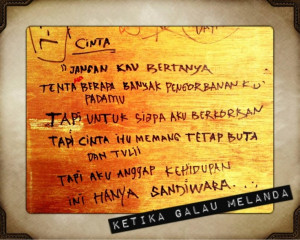 CINTA
"JANGAN KAU BERTANYA
TENTA BERAPA BANYAK PENGORBANAN KU
PADAMU
TAPI UNTUK SIAPA AKU BERKORBAN
TAPI CINTA ITU MEMANG TETAP BUTA
DAN TULI
TAPI AKU ANGGAP KEHIDUPAN
INI HANYA SANDIWARA...
KETIKA GALAU MELANDA